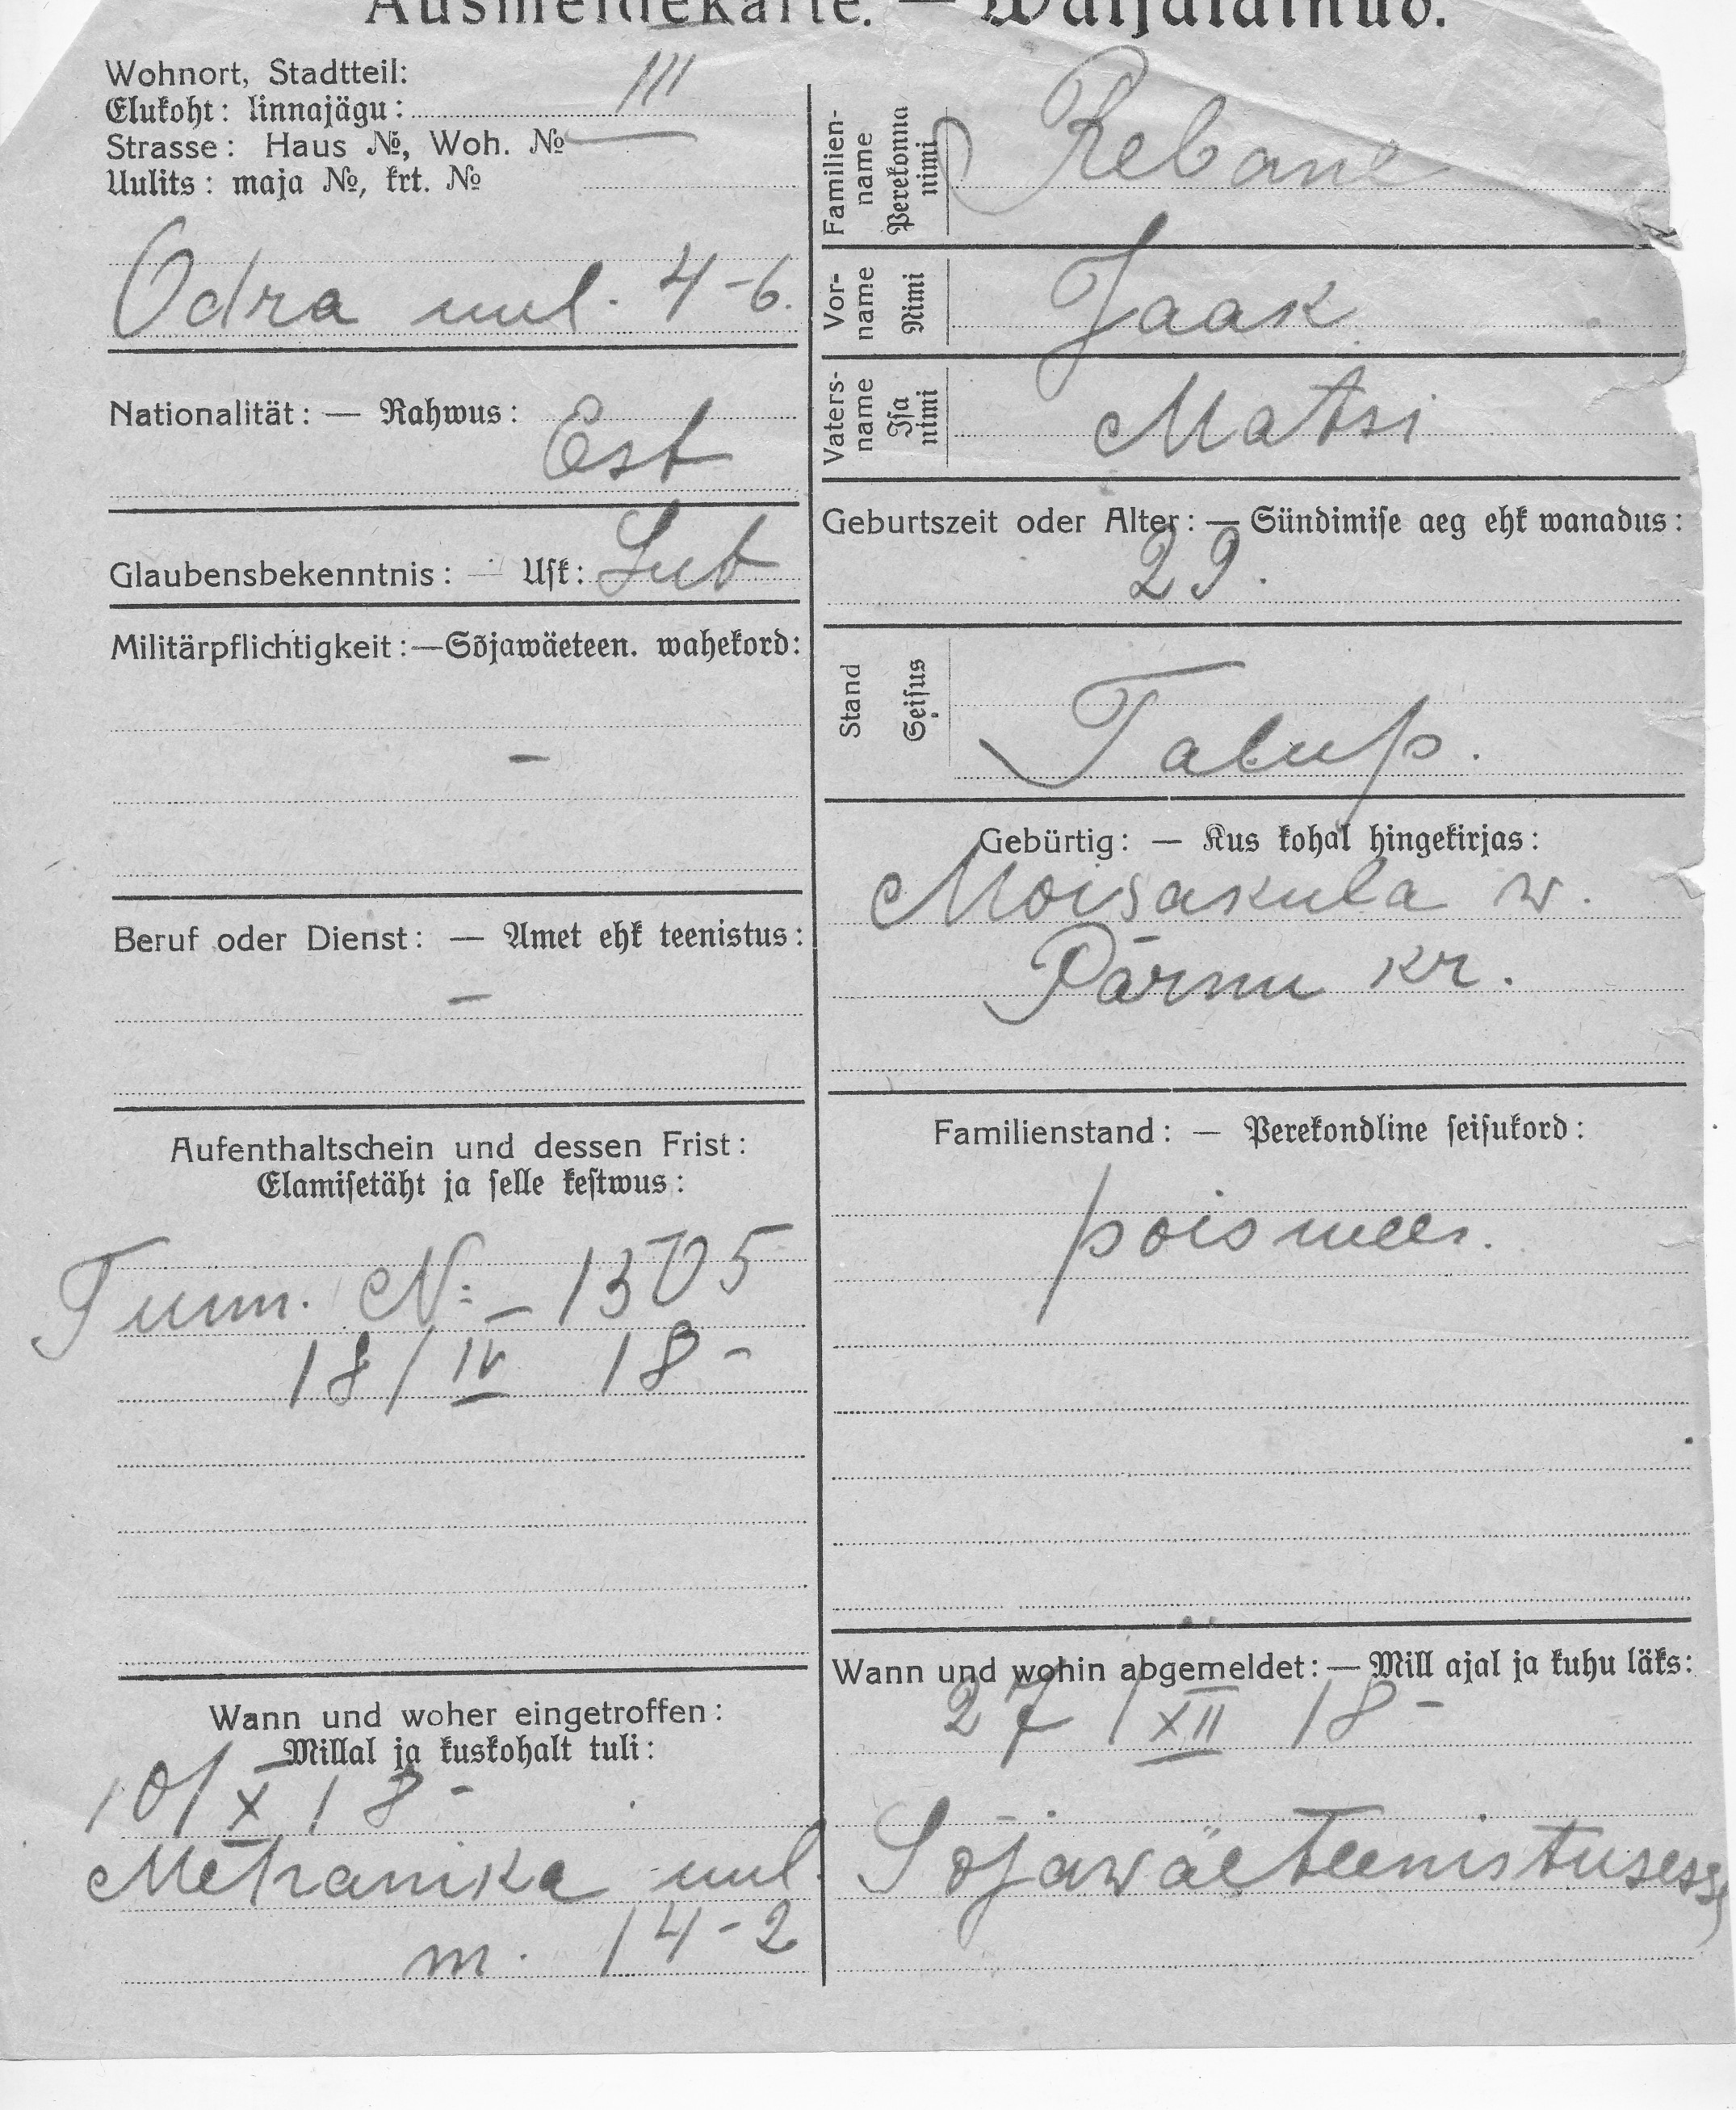 Ausmeldekarte. —
Wohnort, Stadtteil:
Elukoht: linnajägu: III
Strasse: Haus №, Woh. № —
Uulits: maja №, krt. №
Odra uul. 4-6.
Nationalität: — Rahwus:
Est
Glaubensbekenntnis: — Usk: Lut
Militärpflichtigkeit:—Sõjawäeteen. wahekord:
—
Beruf oder Dienst: — Amet ehk teenistus:
—
Aufenthaltschein und dessen Frist:
Elamisetäht ja selle kestwus:
Tunn. №: — 1305
18/IV 18-
Wann und woher eingetroffen:
Millal ja kuskohalt tuli:
10/X 18-
Mehanika uul.
m. 14-2
Familien-
name
Perekonna
nimi
Rebane
Vor-
name
Nimi
Jaak
Vaters-
name
Isa
nimi
Matsi
Geburtszeit oder Alter: — Sündimise aeg ehk wanadus:
29.
Stand
Seisus
Talup.
Gebürtig: — Kus kohal hingekirjas:
Moisakula w.
Pärnu kr.
Familienstand: — Perekondline seisukord:
poismees.
Wann und wohin abgemeldet: — Mill ajal ja kuhu läks:
27/XII 18-
Sõjawäeteenistusesse